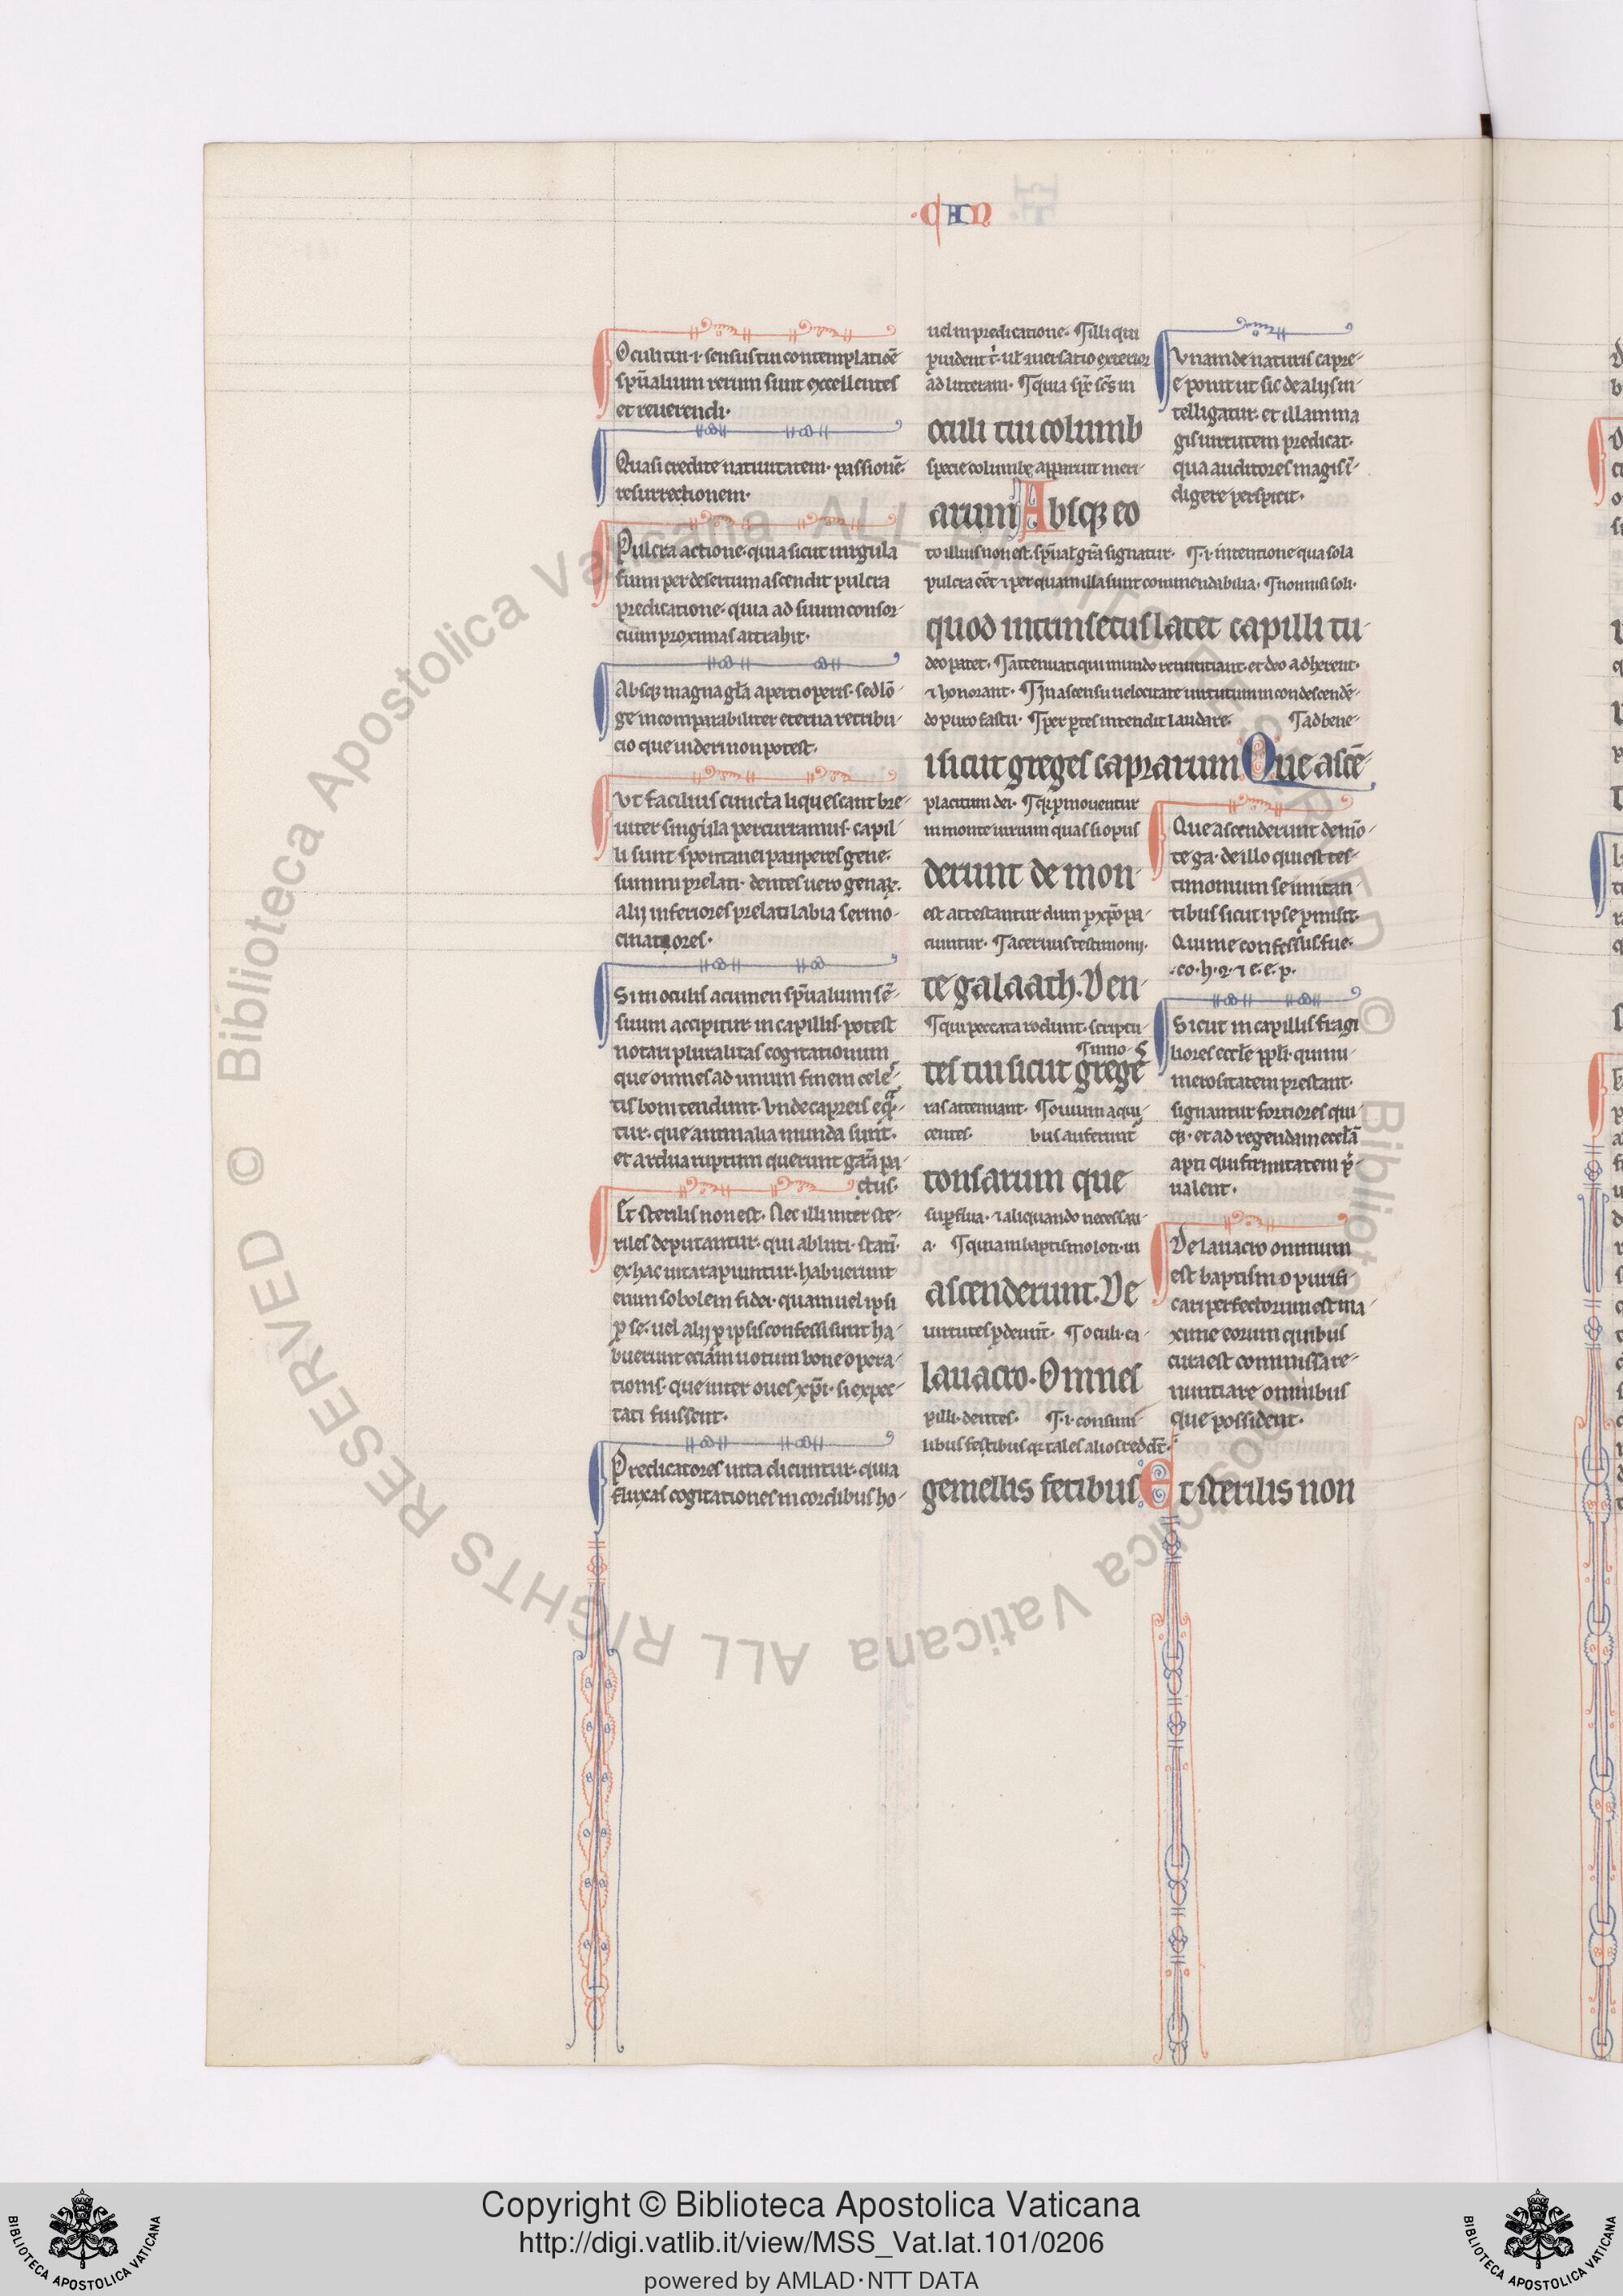 CAN
Oculi tui .i. sensus tui contemplatiōe
sp̄ualium rerum sunt excellentes
et reuerendi.
Quasi credite natiuitatem. passionē.
resurrectionem.
Pulcra actione. quia sicut uirgula
fumi per desertum ascendit pulcra
predicatione. quia ad suum consor-
cium proximas attrahit.
Absq; magna gl̄a aperti operis. sed lō-
ge incomparabiliter eterna retribu-
cio que uideri non potest.
Vt facilius cuncta liquescant bre-
uiter singula percurramus. capil-
li sunt spontanei pauperes gene.
summi prelati. dentes uero genaꝝ.
alij inferiores prelati labia sermo-
cinatores.
Si in oculis acumen sp̄ualium sē-
suum accipitur. in capillis. potest
notari pluralitas cogitationum
que omnes ad unum finem celes-
tis boni tendunt. Vnde capreis eq̄-
tur. que animalia munda sunt.
et ardua rupium querunt gr̄a pa-
ctus.
Et sterilis non est. Nec illi inter ste-
riles deputantur. qui abluti. statī.
ex hac uita rapiuntur. habuerunt
enim sobolem fidei. quam uel ipsi
ꝑ se. uel alij ꝓ ipsis confessi sunt ha-
buerunt eciam uotum bone opera-
tionis. que inter oues xp̄i. si expec-
tati fuissent.
Predicatores uita dicuntur. quia
fluxas cogitationes in cordibus ho-
uel in predicatione. ¶ illi qui
ad litteram. ¶ quia sp̄c sc̄s in
oculi tui columb
specie columbe apparuit meri-
arum Absq; eo
to illius non est. sp̄ual̄ gr̄a signatur. ¶ .i. intentione qua sola
pulcra eēt ⁊ per quam illa sunt commendabilia. ¶ non nisi soli.
quod intrinsecus latet capilli tu-
deo patet. ¶ attenuati qui mundo renuntiant. et deo adherent.
⁊ honorant. ¶ In ascensu uelocitate uirtutum in condescendē-
do puro fastu. ¶ per ꝑtes intendit laudare. ¶ ad bene-
i sicut greges caprarum Que ascē-
placitum dei.
in monte uirtutum quas si opus
derunt de mon-
est attestantur dum ꝓ xp̄o pa-
ciuntur. ¶ aceruus testimonij.
te galaath. Den-
¶ qui peccata rodunt. scriptu-
tes tui sicut greges
ras attenuant.
centes. bus auferunt
tonsarum que
suꝑflua. ⁊ aliquando necessari-
a. ¶ quia in baptismo loti. in
ascenderunt. De
uirtutes ꝓdeunt. ¶ oculi. ca-
lauacro. Omnes
pilli. dentes. ¶ .i. consimi-
libus fetibus
gemellis fetibus Et sterilis non
Vnam de naturis capre-
e ponit ut sic de alijs in-
telligatur. et illam ma
gis uirtutem predicat.
qua auditores magis ī-
digere perspicit.
Que ascenderunt de mō-
te ga. de illo qui est tes-
timonium se imitan-
tibus sicut ipse ꝓmisit.
Qui me confessus fue.
.co. h. ⁊ e. e. p.
Sicut in capillis fragi
liores eccl̄e ppl̄i. qui nu-
merositatem prestant.
signantur fortiores qui-
q; et ad regendam eccl̄ā
apti qui firmitatem p̄-
ualent.
De lauacro omnium
est baptismo purifi-
cari perfectorum est ma-
xime eorum quibus
cura est commissa re-
nuntiare omnibus
que possident.
© Biblioteca Apostolica Vaticana ALL RIGHTS RESERVED
© Biblioteca Apostolica Vaticana ALL RIGHTS RESERVED
BIBLIOTECA APOSTOLICA VATICANA
Copyright © Biblioteca Apostolica Vaticana
http://digi.vatlib.it/view/MSS_Vat.lat.101/0206
powered by AMLAD·NTT DATA
BIBLIOTECA APOSTOLICA VATICANA